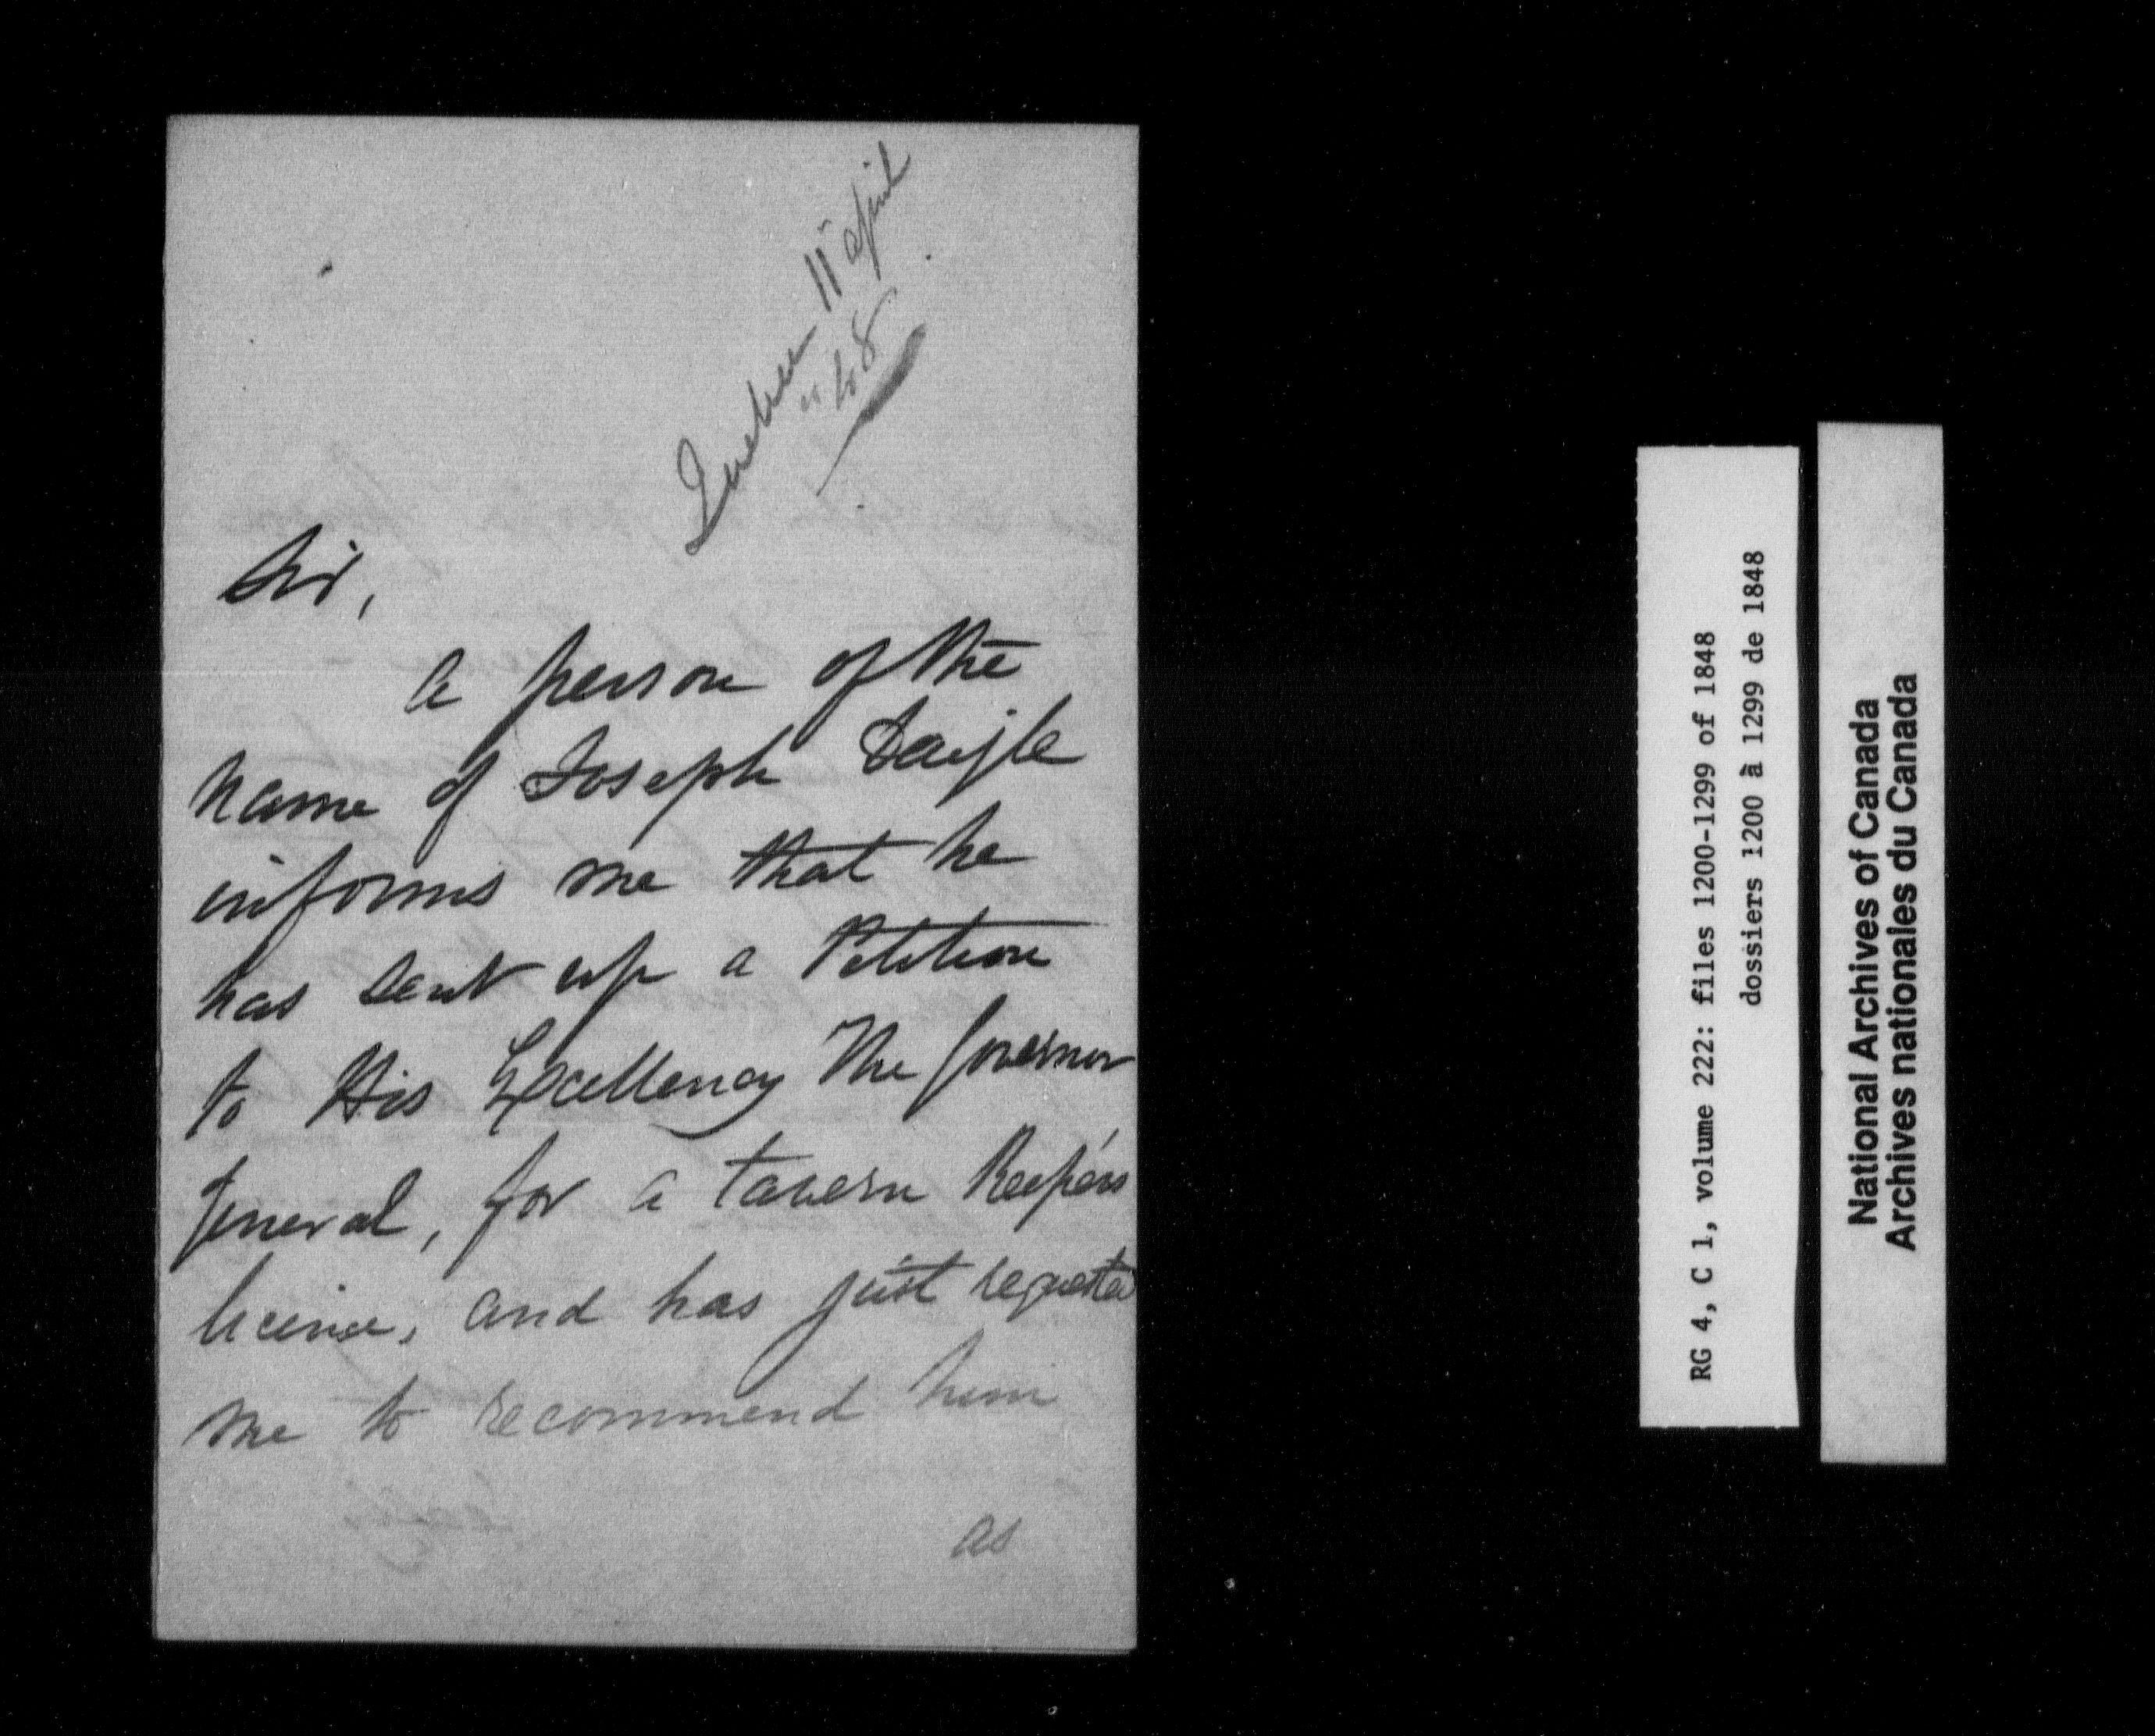 Quebec 11 april
" 48
Sir,
a person of the
name of Joseph Daigle
informs me that he
has sent up a Petition
to His Excellency The Governor
General, for a tavern Keeper's
licence, and has just requested
me to recommend him
as
RG 4, C 1, volume 222: files 1200-1299 of 1848
dossiers 1200 à 1299 de 1848
National Archives of Canada
Archives nationales du Canada